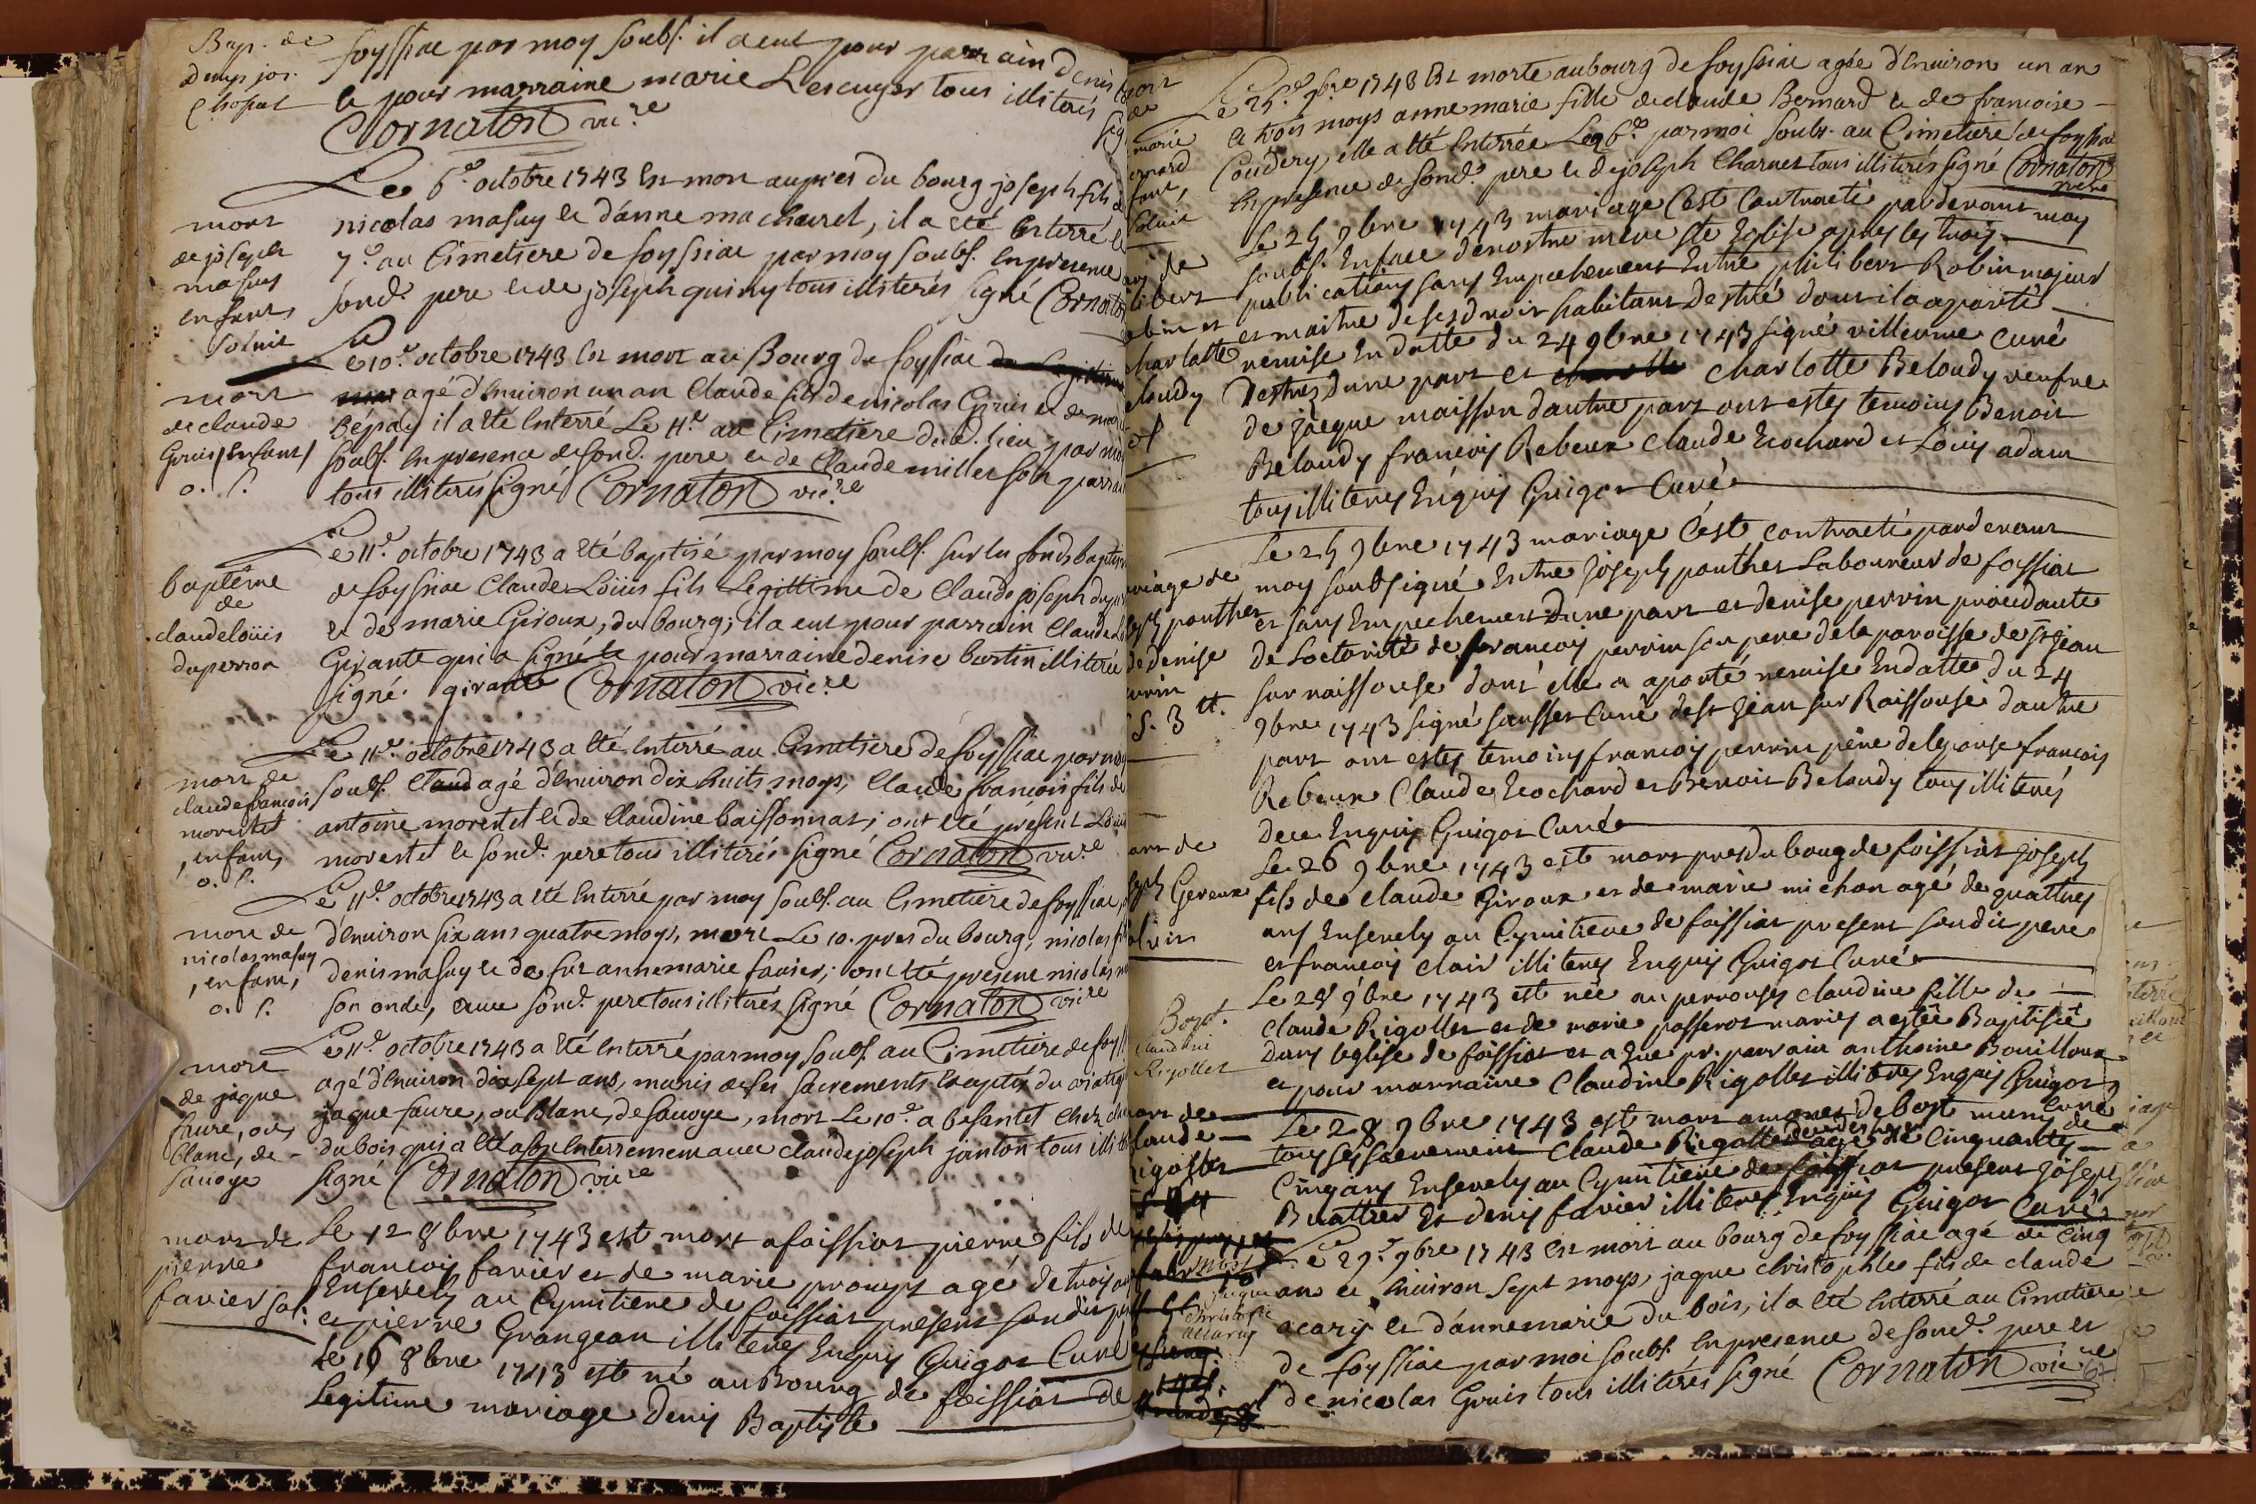 Bap. de
denys jos.
Chosat
foyssiac par moy soubs. il a eut pour parrain denis
le pour marraine marie Lescuyer tous illiterés
Cornaton vic.re
Le 6.e octobre 1743 est mort aupres du bourg joseph fils
nicolas masuy et d'anne machurel, il a eté enterré le
7.e au Cimetiere de foyssiac par moy soubs. en presence
sond. pere et de joseph quiny tous illiterés signé Cornaton
mort
de joseph
masuy
enfant
solvit
Le 10.e octobre 1743 est mort au Bourg de foyssiac
agé d'environ un an Claude fils de nicolas Gruis et de marie
Bépay il a eté enterré Le 11.e au Cimetiere dud. lieu par moy
soubs. en presence de sond. pere et de Claude millet son parrain
tous illiterés signé Cornaton vic.re
mort
de claude
Gruis /enfant/
o. s.
Le 11.e octobre 1743 a eté baptisé par moy soubs. sur les fonds
de foyssiac Claude Loüis fils Legittime de Claude joseph
et de marie Giroux, du bourg; il a eut pour parrain Claude
Girante qui a signé le pour marraine denise bastin illiterée
signé. girante Cornaton vic.re
baptême
de
claudeloüis
duperron
Le 11.e octobre 1743 a eté enterré au Cimetiere de foyssiac par moy
soubs. agé d'environ dix huits moys, Claude francois fils de
antoine morestel et de Claudine baissonnat; ont eté présent
morestel le sond. pere tous illiterés signé Cornaton vic.re
mort de
claudefrancois
morestel
, enfant,
o. s.
Le 11.e octobre 1743 a eté enterré par moy soubs. au Cimetiere de foyssiac,
d'environ six ans quatre moys, mort Le 10. pres du bourg, nicolas
denis masuy et de fut anne marie favier; ont eté present nicolas
son oncle, avec sond. pere tous illiterés signé Cornaton vic.re
mort de
nicolas masuy
, enfant,
o. s.
Le 11.e octobre 1743 a eté enterré par moy soubs. au Cimetiere de
agé d'environ dix sept ans, munis de ses sacrements excepté du
jaque faure, ou Blanc, de savoye, mort Le 10.e a besantet Chez
dubois qui a eté a son enterrement avec claude joseph janton tous
signé Cornaton vic.re
mort
de jaque
faure, ou
blanc, de
savoye
Le 12 8bre 1743 est mort a foissiat pierre fils de
francois favier et de marie prompt agé de trois
Ensevely au Cymitiere de foissiat present son dit
et pierre Grangean illiterés Enquis Guigot Curé
mort de
pierre
favier sol:
le 16 8bre 1743 est né au Bourg de foissiat de
Legitime mariage denis Baptiste
Le 25.e 9bre 1743 est morte au bourg de foyssiac agée d'environ un an
et trois moys anne marie fille de claude Bernard et de francoise
Coudery, elle a eté enterrée Le 26.e par moi soubs. au Cimetiere de foyssiac
en presence de sond. pere et de joseph Charnet tous illiterés signé Cornaton
vic.re
mort
de
marie
solvit
Le 25 9bre 1743 mariage C'est Contracté par devant moy
soubs. En face de nostre mere ste Eglise apres les trois
publications sans Empechement Entre philibert Robin majeur
et maitre de ses droits habitant Destré dont il a aporté
remise En datte du 24 9bre 1743 signé villerme Curé
Destrez dune part et Charlotte Beloudy veufve
de jacque maisson dautre part ont estes temoins Benoit
Beloudy francois Rebeux Claude Ecochard et Louis adam
tous illiteres Enquis Guigot Curé
Le 25 9bre 1743 mariage C'est contracté pardevant
moy soubsigné Entre joseph ponthet Laboureur de foissiat
et sans Empechement dune part et denise perrin procedante
de Loctorité de francois perrin son pere de la paroisse de st jean
sur raissouse dont elle a aporté remise En datte du 24
9bre 1743 signé sausset Curé de st jean sur Raissouse dautre
part ont estes temoins francois perrin pere de lepouse francois
Rebeux Claude Ecochard et Benoit Beloudy tous illiterés
de ce Enquis Guigot Curé
ponthet
denise
S. 3 tt.
Le 26 9bre 1743 est mort pres du bourg de foissiat joseph
fils de claude Giroux et de marie michon agé de quattres
ans Ensevely au Cymitiere de foissiat present son dit pere
et francois clair illiteres Enquis Guigot Curé
Gereux
Le 28 9bre 1743 est née au pervouses claudine fille de
claude Rigollet et de marie passerot maries a estée Baptisée
dans leglise de foissiat et a Eue pr. parrain anthoine Bouilloux
et pour marraine Claudine Rigollet illiteres Enquis Guigot
Curé
Bapt.
claudine
Rigollet
Le 28 9bre 1743 est mort de bost muni de
tous ses sacrements Claude Rigollet agé de Cinquante
Cinq ans Ensevely au Cymitiere de foissiat present joseph
Buattier et denis favier illiteres Enquis Guigot Curé
Le 29.e 9bre 1743 est mort au bourg de foyssiac agé de cinq
an et environ sept moys jaque christophle fils de claude
acarÿ et d'anne marie du bois, il a eté enterré au Cimetiere
de foyssiac par moi soubs. en presence de sond. pere et
de nicolas Gruis tous illiterés signé Cornaton vic.re